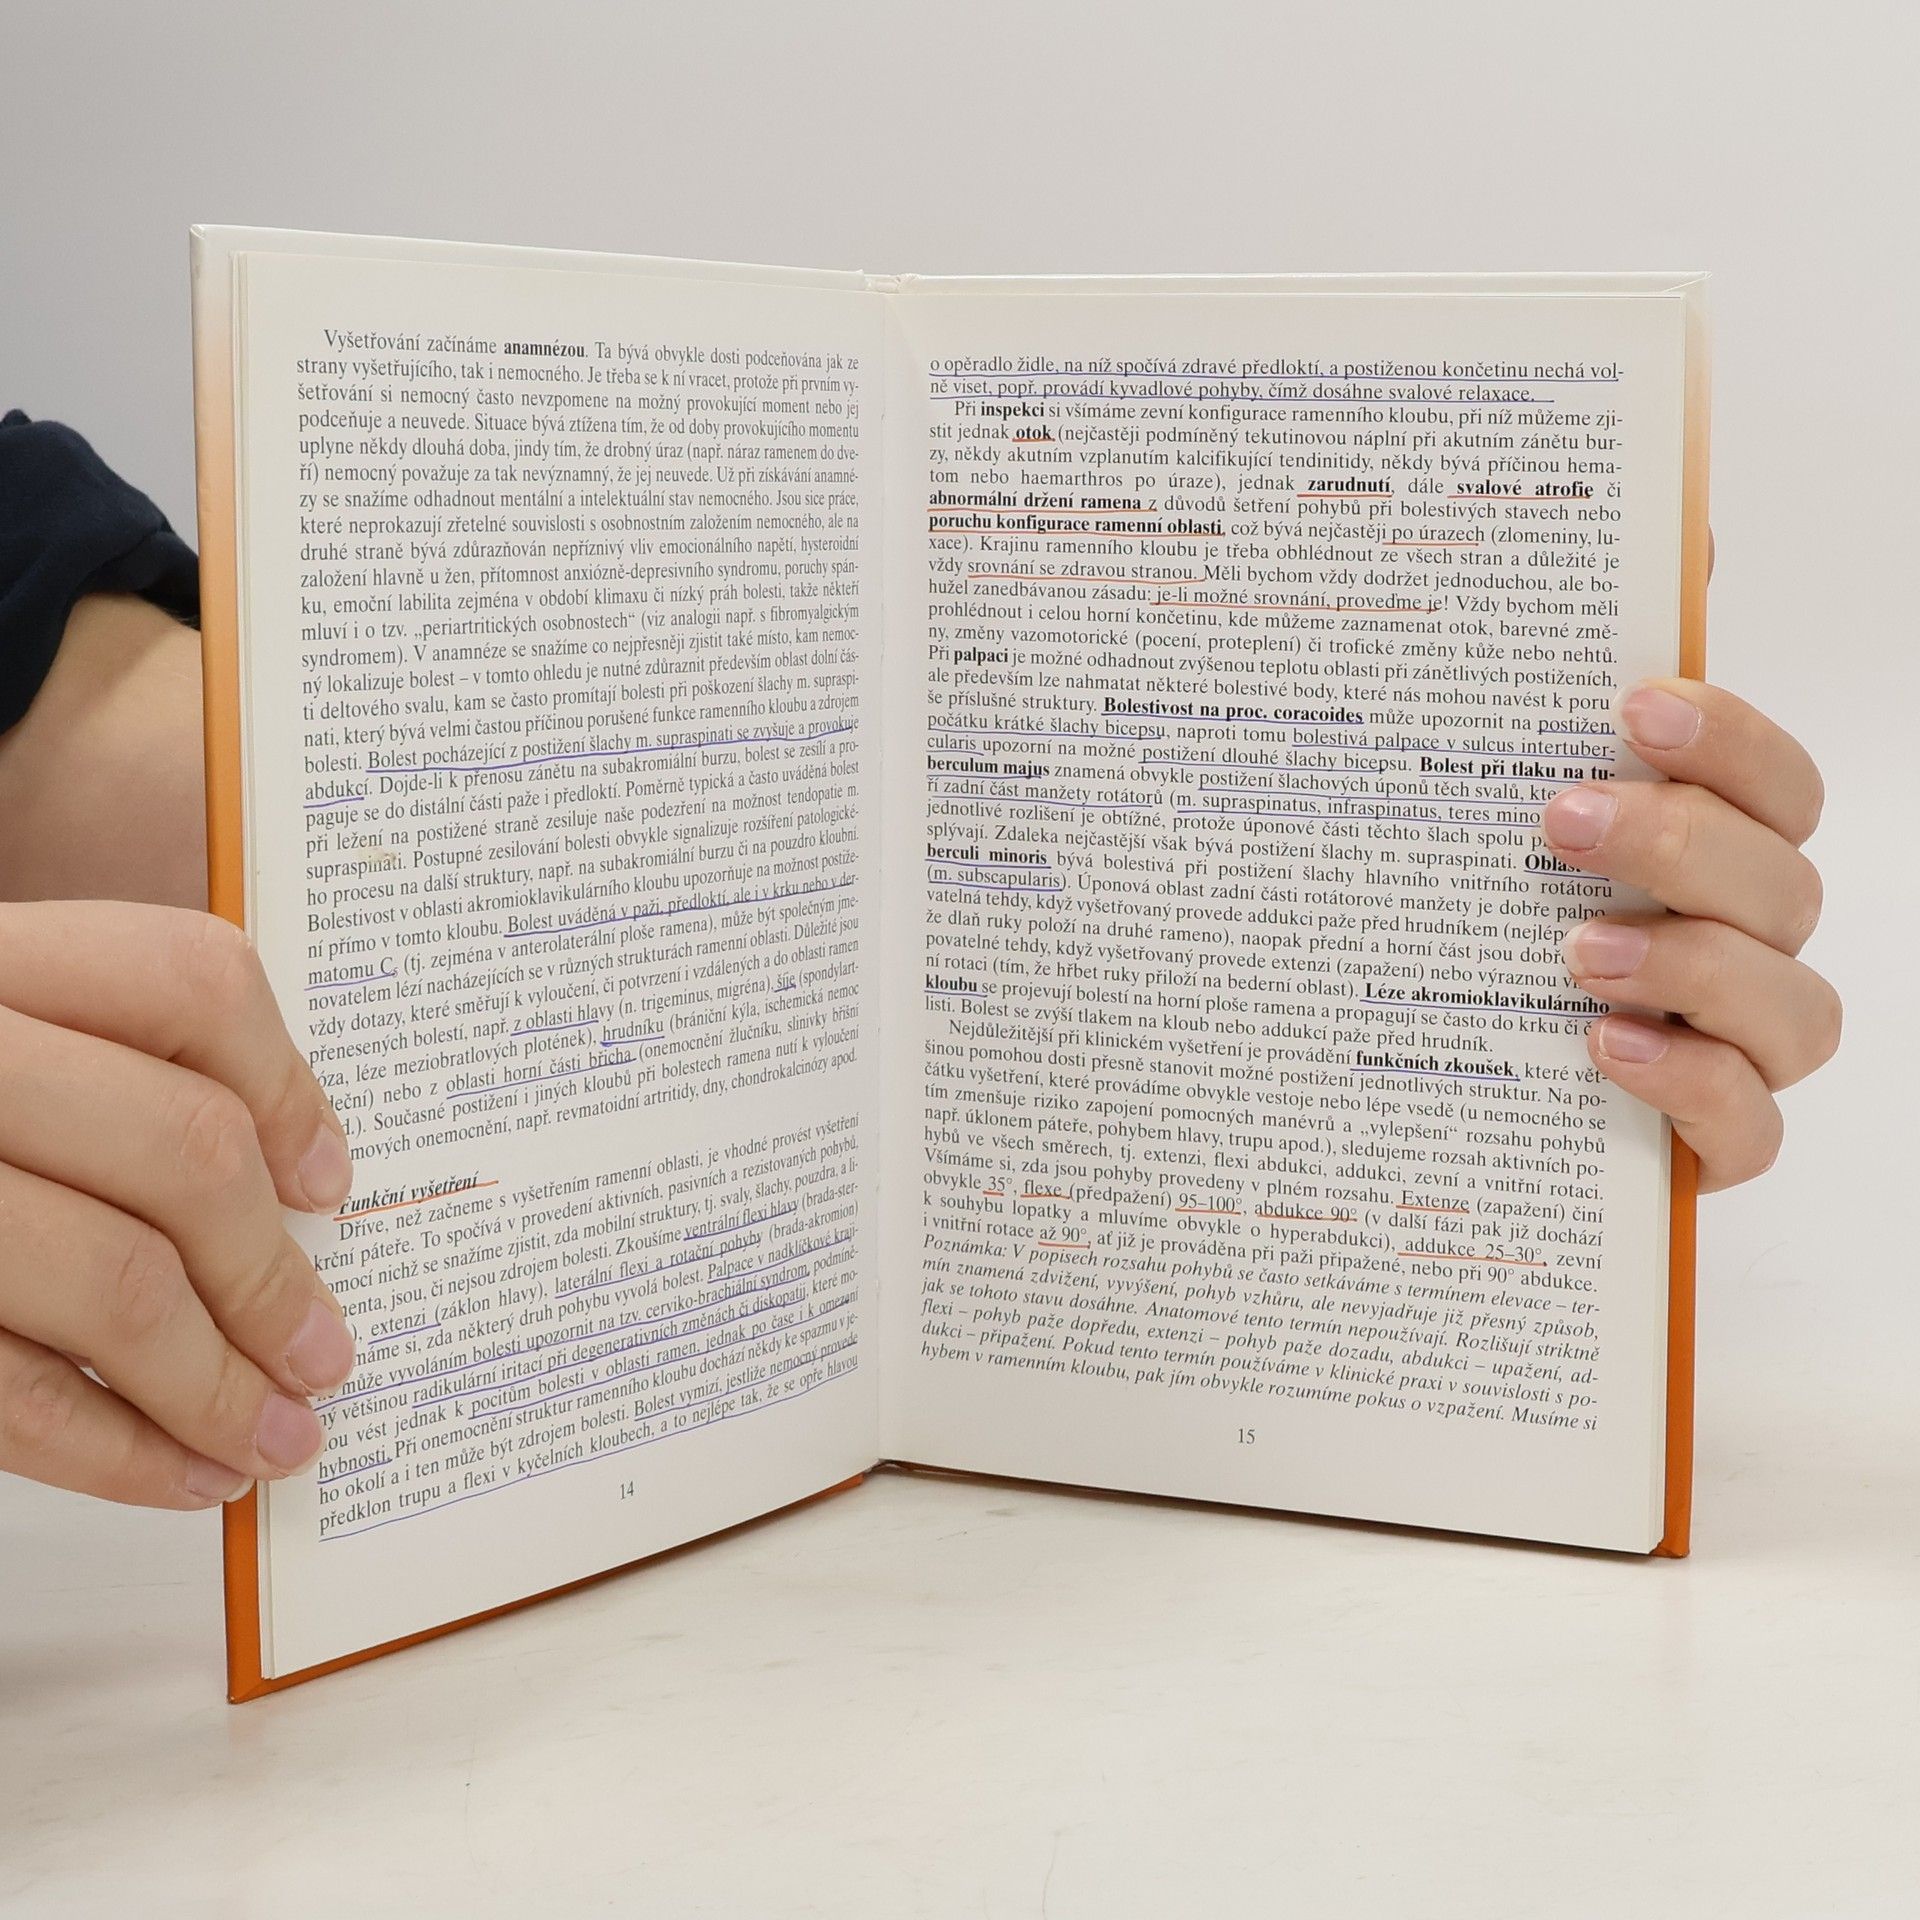 Vyšetřování začínáme anamnézou. Ta bývá obvykle dosti podceňována jak ze
strany vyšetřujícího, tak i nemocného. Je třeba se k ní vracet, protože při prvním vy-
šetřování si nemocný často nevzpomene na možný provokující moment nebo jej
podceňuje a neuvede. Situace bývá ztížena tím, že od doby provokujícího momentu
uplyne někdy dlouhá doba, jindy tím, že drobný úraz (např. náraz ramenem do dve-
ří) nemocný považuje za tak nevýznamný, že jej neuvede. Už při získávání anamné-
zy se snažíme odhadnout mentální a intelektuální stav nemocného. Jsou sice práce,
které neprokazují zřetelné souvislosti s osobnostním založením nemocného, ale na
druhé straně bývá zdůrazňován nepříznivý vliv emocionálního napětí, hysteroidní
založení hlavně u žen, přítomnost anxiózně-depresivního syndromu, poruchy spán-
ku, emoční labilita zejména v období klimaxu či nízký práh bolesti, takže někteří
mluví i o tzv. „periartritických osobnostech“ (viz analogii např. s fibromyalgickým
syndromem). V anamnéze se snažíme co nejpřesněji zjistit také místo, kam nemoc-
ný lokalizuje bolest – v tomto ohledu je nutné zdůraznit především oblast dolní čás-
ti deltového svalu, kam se často promítají bolesti při poškození šlachy m. supraspi-
nati, který bývá velmi častou příčinou porušené funkce ramenního kloubu a zdrojem
bolesti. Bolest pocházející z postižení šlachy m. supraspinati se zvyšuje a provokuje
abdukcí. Dojde-li k přenosu zánětu na subakromiální burzu, bolest se zesílí a pro-
paguje se do distální části paže i předloktí. Poměrně typická a často uváděná bolest
při ležení na postižené straně zesiluje naše podezření na možnost tendopatie m.
supraspinati. Postupné zesilování bolesti obvykle signalizuje rozšíření patologické-
ho procesu na další struktury, např. na subakromiální burzu či na pouzdro kloubní.
Bolestivost v oblasti akromioklavikulárního kloubu upozorňuje na možnost postiže-
ní přímo v tomto kloubu. Bolest uváděná v paži, předloktí, ale i v krku nebo v der-
matomu C5 (tj. zejména v anterolaterální ploše ramena), může být společným jme-
novatelem lézí nacházejících se v různých strukturách ramenní oblasti. Důležité jsou
vždy dotazy, které směřují k vyloučení, či potvrzení i vzdálených a do oblasti ramen
přenesených bolestí, např. z oblasti hlavy (n. trigeminus, migréna), šíje (spondylart-
óza, léze meziobratlových plotének), hrudníku (brániční kýla, ischemická nemoc
deční) nebo z oblasti horní části břicha (onemocnění žlučníku, slinivky břišní
d.). Současné postižení i jiných kloubů při bolestech ramena nutí k vyloučení
mových onemocnění, např. revmatoidní artritidy, dny, chondrokalcinózy apod.
Funkční vyšetření
Dříve, než začneme s vyšetřením ramenní oblasti, je vhodné provést vyšetření
krční páteře. To spočívá v provedení aktivních, pasivních a rezistovaných pohybů,
omocí nichž se snažíme zjistit, zda mobilní struktury, tj. svaly, šlachy, pouzdra, a li-
menta, jsou, či nejsou zdrojem bolesti. Zkoušíme ventrální flexi hlavy (brada-ster-
), extenzi (záklon hlavy), laterální flexi a rotační pohyby (brada-akromion)
máme si, zda některý druh pohybu vyvolá bolest. Palpace v nadklíčkové kraji-
ně může vyvoláním bolesti upozornit na tzv. cerviko-brachiální syndrom, podmíně-
ný většinou radikulární iritací při degenerativních změnách či diskopatii, které mo-
hou vést jednak k pocitům bolesti v oblasti ramen, jednak po čase i k omezení
hybnosti. Při onemocnění struktur ramenního kloubu dochází někdy ke spazmu v je-
ho okolí a i ten může být zdrojem bolesti. Bolest vymizí, jestliže nemocný provede
předklon trupu a flexi v kyčelních kloubech, a to nejlépe tak, že se opře hlavou
14
o opěradlo židle, na níž spočívá zdravé předloktí, a postiženou končetinu nechá vol-
ně viset, popř. provádí kyvadlové pohyby, čímž dosáhne svalové relaxace.
Při inspekci si všímáme zevní konfigurace ramenního kloubu, při níž můžeme zji-
stit jednak otok (nejčastěji podmíněný tekutinovou náplní při akutním zánětu bur-
zy, někdy akutním vzplanutím kalcifikující tendinitidy, někdy bývá příčinou hema-
tom nebo haemarthros po úraze), jednak zarudnutí, dále svalové atrofie či
abnormální držení ramena z důvodů šetření pohybů při bolestivých stavech nebo
poruchu konfigurace ramenní oblasti, což bývá nejčastěji po úrazech (zlomeniny, lu-
xace). Krajinu ramenního kloubu je třeba obhlédnout ze všech stran a důležité je
vždy srovnání se zdravou stranou. Měli bychom vždy dodržet jednoduchou, ale bo-
hužel zanedbávanou zásadu: je-li možné srovnání, proveďme je! Vždy bychom měli
prohlédnout i celou horní končetinu, kde můžeme zaznamenat otok, barevné změ-
ny, změny vazomotorické (pocení, proteplení) či trofické změny kůže nebo nehtů.
Při palpaci je možné odhadnout zvýšenou teplotu oblasti při zánětlivých postiženích,
ale především lze nahmatat některé bolestivé body, které nás mohou navést k poru
še příslušné struktury. Bolestivost na proc. coracoides může upozornit na postižen
počátku krátké šlachy bicepsu, naproti tomu bolestivá palpace v sulcus intertuber-
cularis upozorní na možné postižení dlouhé šlachy bicepsu. Bolest při tlaku na tu-
berculum majus znamená obvykle postižení šlachových úponů těch svalů, kte
ří zadní část manžety rotátorů (m. supraspinatus, infraspinatus, teres mino
jednotlivé rozlišení je obtížné, protože úponové části těchto šlach spolu p
splývají. Zdaleka nejčastější však bývá postižení šlachy m. supraspinati. Oblas
berculi minoris bývá bolestivá při postižení šlachy hlavního vnitřního rotátoru
(m. subscapularis). Úponová oblast zadní části rotátorové manžety je dobře palpo
vatelná tehdy, když vyšetřovaný provede addukci paže před hrudníkem (nejlépe
že dlaň ruky položí na druhé rameno), naopak přední a horní část jsou dobř
povatelné tehdy, když vyšetřovaný provede extenzi (zapažení) nebo výraznou v
ní rotaci (tím, že hřbet ruky přiloží na bederní oblast). Léze akromioklavikulárního
kloubu se projevují bolestí na horní ploše ramena a propagují se často do krku či č
listi. Bolest se zvýší tlakem na kloub nebo addukcí paže před hrudník.
Nejdůležitější při klinickém vyšetření je provádění funkčních zkoušek, které vět-
šinou pomohou dosti přesně stanovit možné postižení jednotlivých struktur. Na po-
čátku vyšetření, které provádíme obvykle vestoje nebo lépe vsedě (u nemocného se
tím zmenšuje riziko zapojení pomocných manévrů a „vylepšení“ rozsahu pohybů
např. úklonem páteře, pohybem hlavy, trupu apod.), sledujeme rozsah aktivních po-
hybů ve všech směrech, tj. extenzi, flexi abdukci, addukci, zevní a vnitřní rotaci.
Všímáme si, zda jsou pohyby provedeny v plném rozsahu. Extenze (zapažení) činí
obvykle 35°, flexe (předpažení) 95–100°, abdukce 90° (v další fázi pak již dochází
k souhybu lopatky a mluvíme obvykle o hyperabdukci), addukce 25–30°, zevní
i vnitřní rotace až 90°, ať již je prováděna při paži připažené, nebo při 90° abdukce.
Poznámka: V popisech rozsahu pohybů se často setkáváme s termínem elevace – ter-
mín znamená zdvižení, vyvýšení, pohyb vzhůru, ale nevyjadřuje již přesný způsob,
jak se tohoto stavu dosáhne. Anatomové tento termín nepoužívají. Rozlišují striktně
flexi – pohyb paže dopředu, extenzi – pohyb paže dozadu, abdukci – upažení, ad-
dukci – připažení. Pokud tento termín používáme v klinické praxi v souvislosti s po-
hybem v ramenním kloubu, pak jím obvykle rozumíme pokus o vzpažení. Musíme si
15